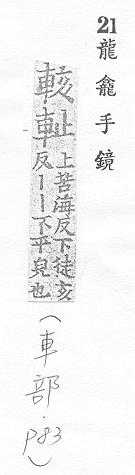 21 龍龕手鏡
輆
上苦海反下徒亥
反丨丨不平皃也
(車部．P83)